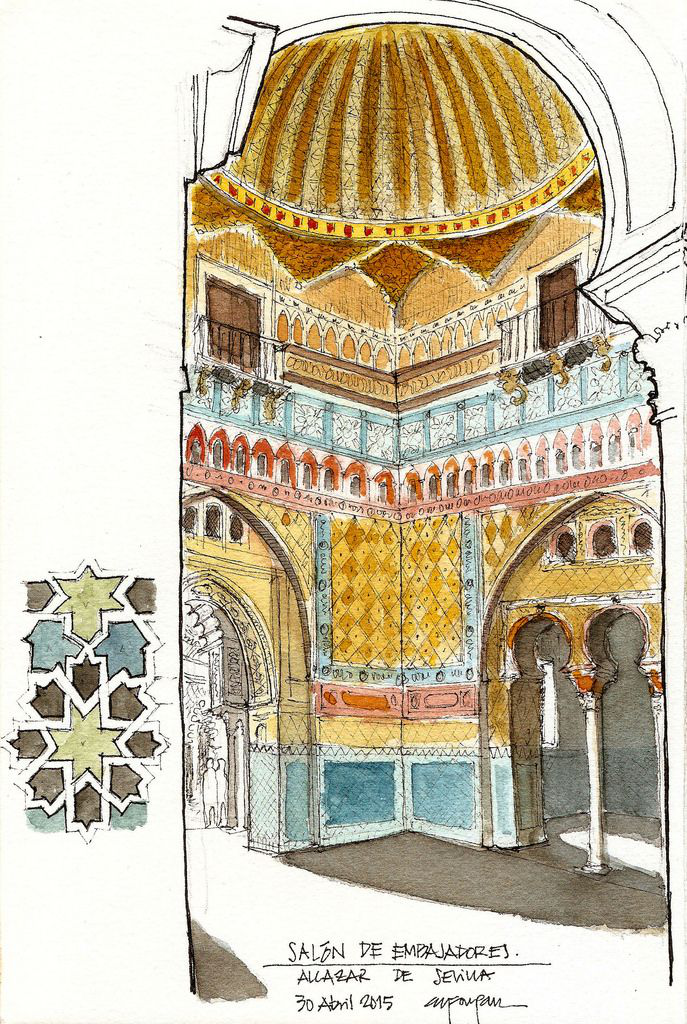 SALÓN DE EMBAJADORES.
ALCAZAR DE SEVILLA
30 Abril 2015